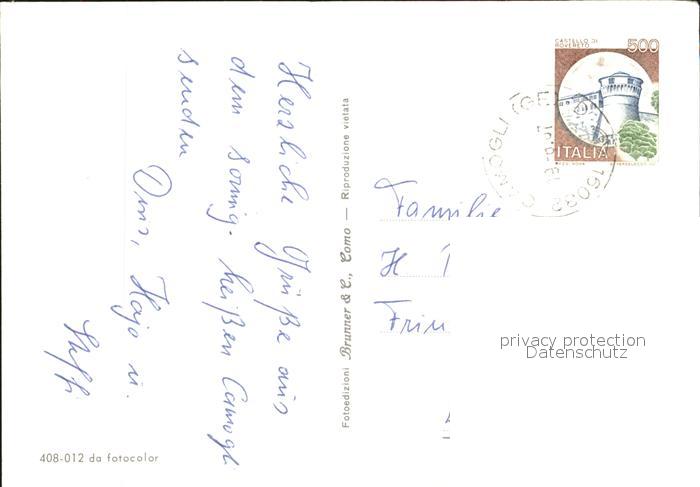 Herzliche Grüße aus
dem sonnig-heißen Camogli
senden
Hajo u.
Steffi
Fotoedizioni Brunner & C., Como — Riproduzione vietata
CASTELLO DI
ROVERETO
500
ITALIA
16032 CAMOGLI (GE)
Familie
H
privacy protection
Datenschutz
408-012 da fotocolor